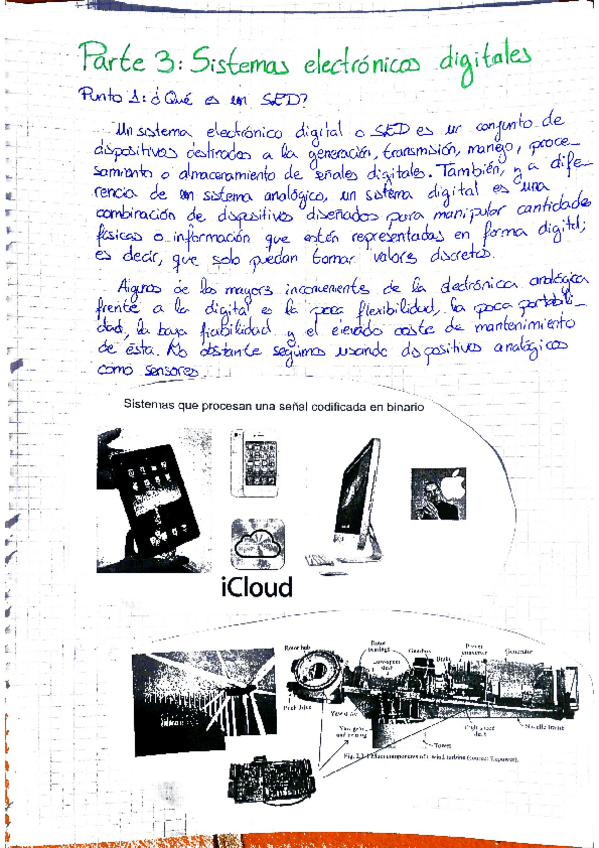 Parte 3: Sistemas electrónicos digitales
Punto 1: ¿Qué es un SED?
Un sistema electrónico digital o SED es un conjunto de
dispositivos destinados a la generación, transmisión, manejo, proce-
samiento o almacenamiento de señales digitales. También, y a dife-
rencia de un sistema analógico, un sistema digital es una
combinación de dispositivos diseñados para manipular cantidades
físicas o información que estén representadas en forma digital;
es decir, que solo puedan tomar valores discretos.
Algunos de los mayores inconvenientes de la electrónica analógica
frente a la digital es la poca flexibilidad, la poca portabili-
dad, la baja fiabilidad y el elevado coste de mantenimiento
de ésta. No obstante seguimos usando dispositivos analógicos
como sensores.
Sistemas que procesan una señal codificada en binario
iCloud
Rotor hub
Rotor bearings
Gearbox
Brake
Power converter
Generator
Low-speed shaft
Pitch drive
Yaw drive
High-speed shaft
Nacelle frame
Tower